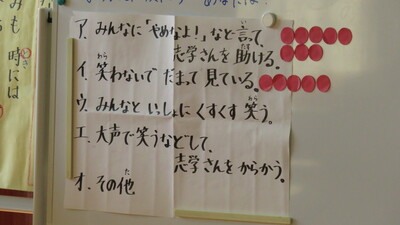 ア.みんなに「やめなよ!」など言って、
志学さんを助ける。
イ.笑わないでだまって見ている。
ウ.みんなといっしょにくすくす笑う。
エ.大声で笑うなどして、
志学さんをからかう。
オ.その他
みも 時には